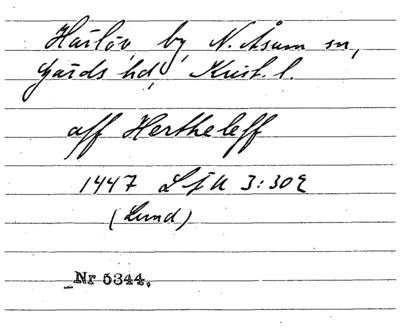 Härlöv, by, N. Åsum sn,
Gärds hd, Krist. l.
aff Hertheleff
1447 LfU 3:302
(Lund)
Nr 5344.